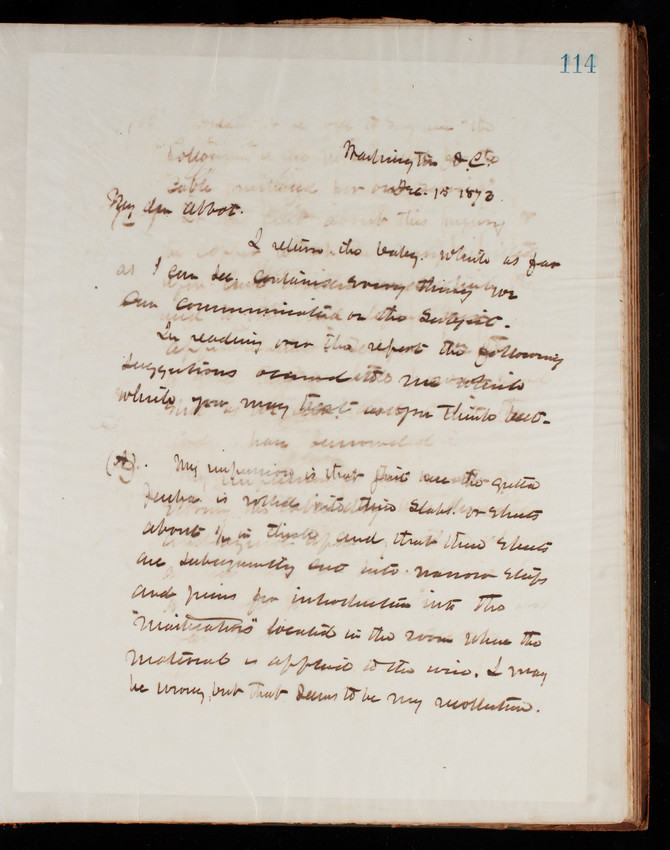 114
Washington D.C.
Dec. 15 1873.
My dear Abbot.
I return the
as I can see, contains every thing
can communicated on the subject.
In reading over the report the following
suggestions occured to me
which you may treat as you think best.
(A). My impression is that first the gutta
percha is rolled into thin slabs or sheets
about in thick and that these sheets
are subsequently cut into narrow strips
and for introduction into the
"Masticators" located in the room where the
material is applied to the wire. I may
be wrong, but that seems to be my recollection.